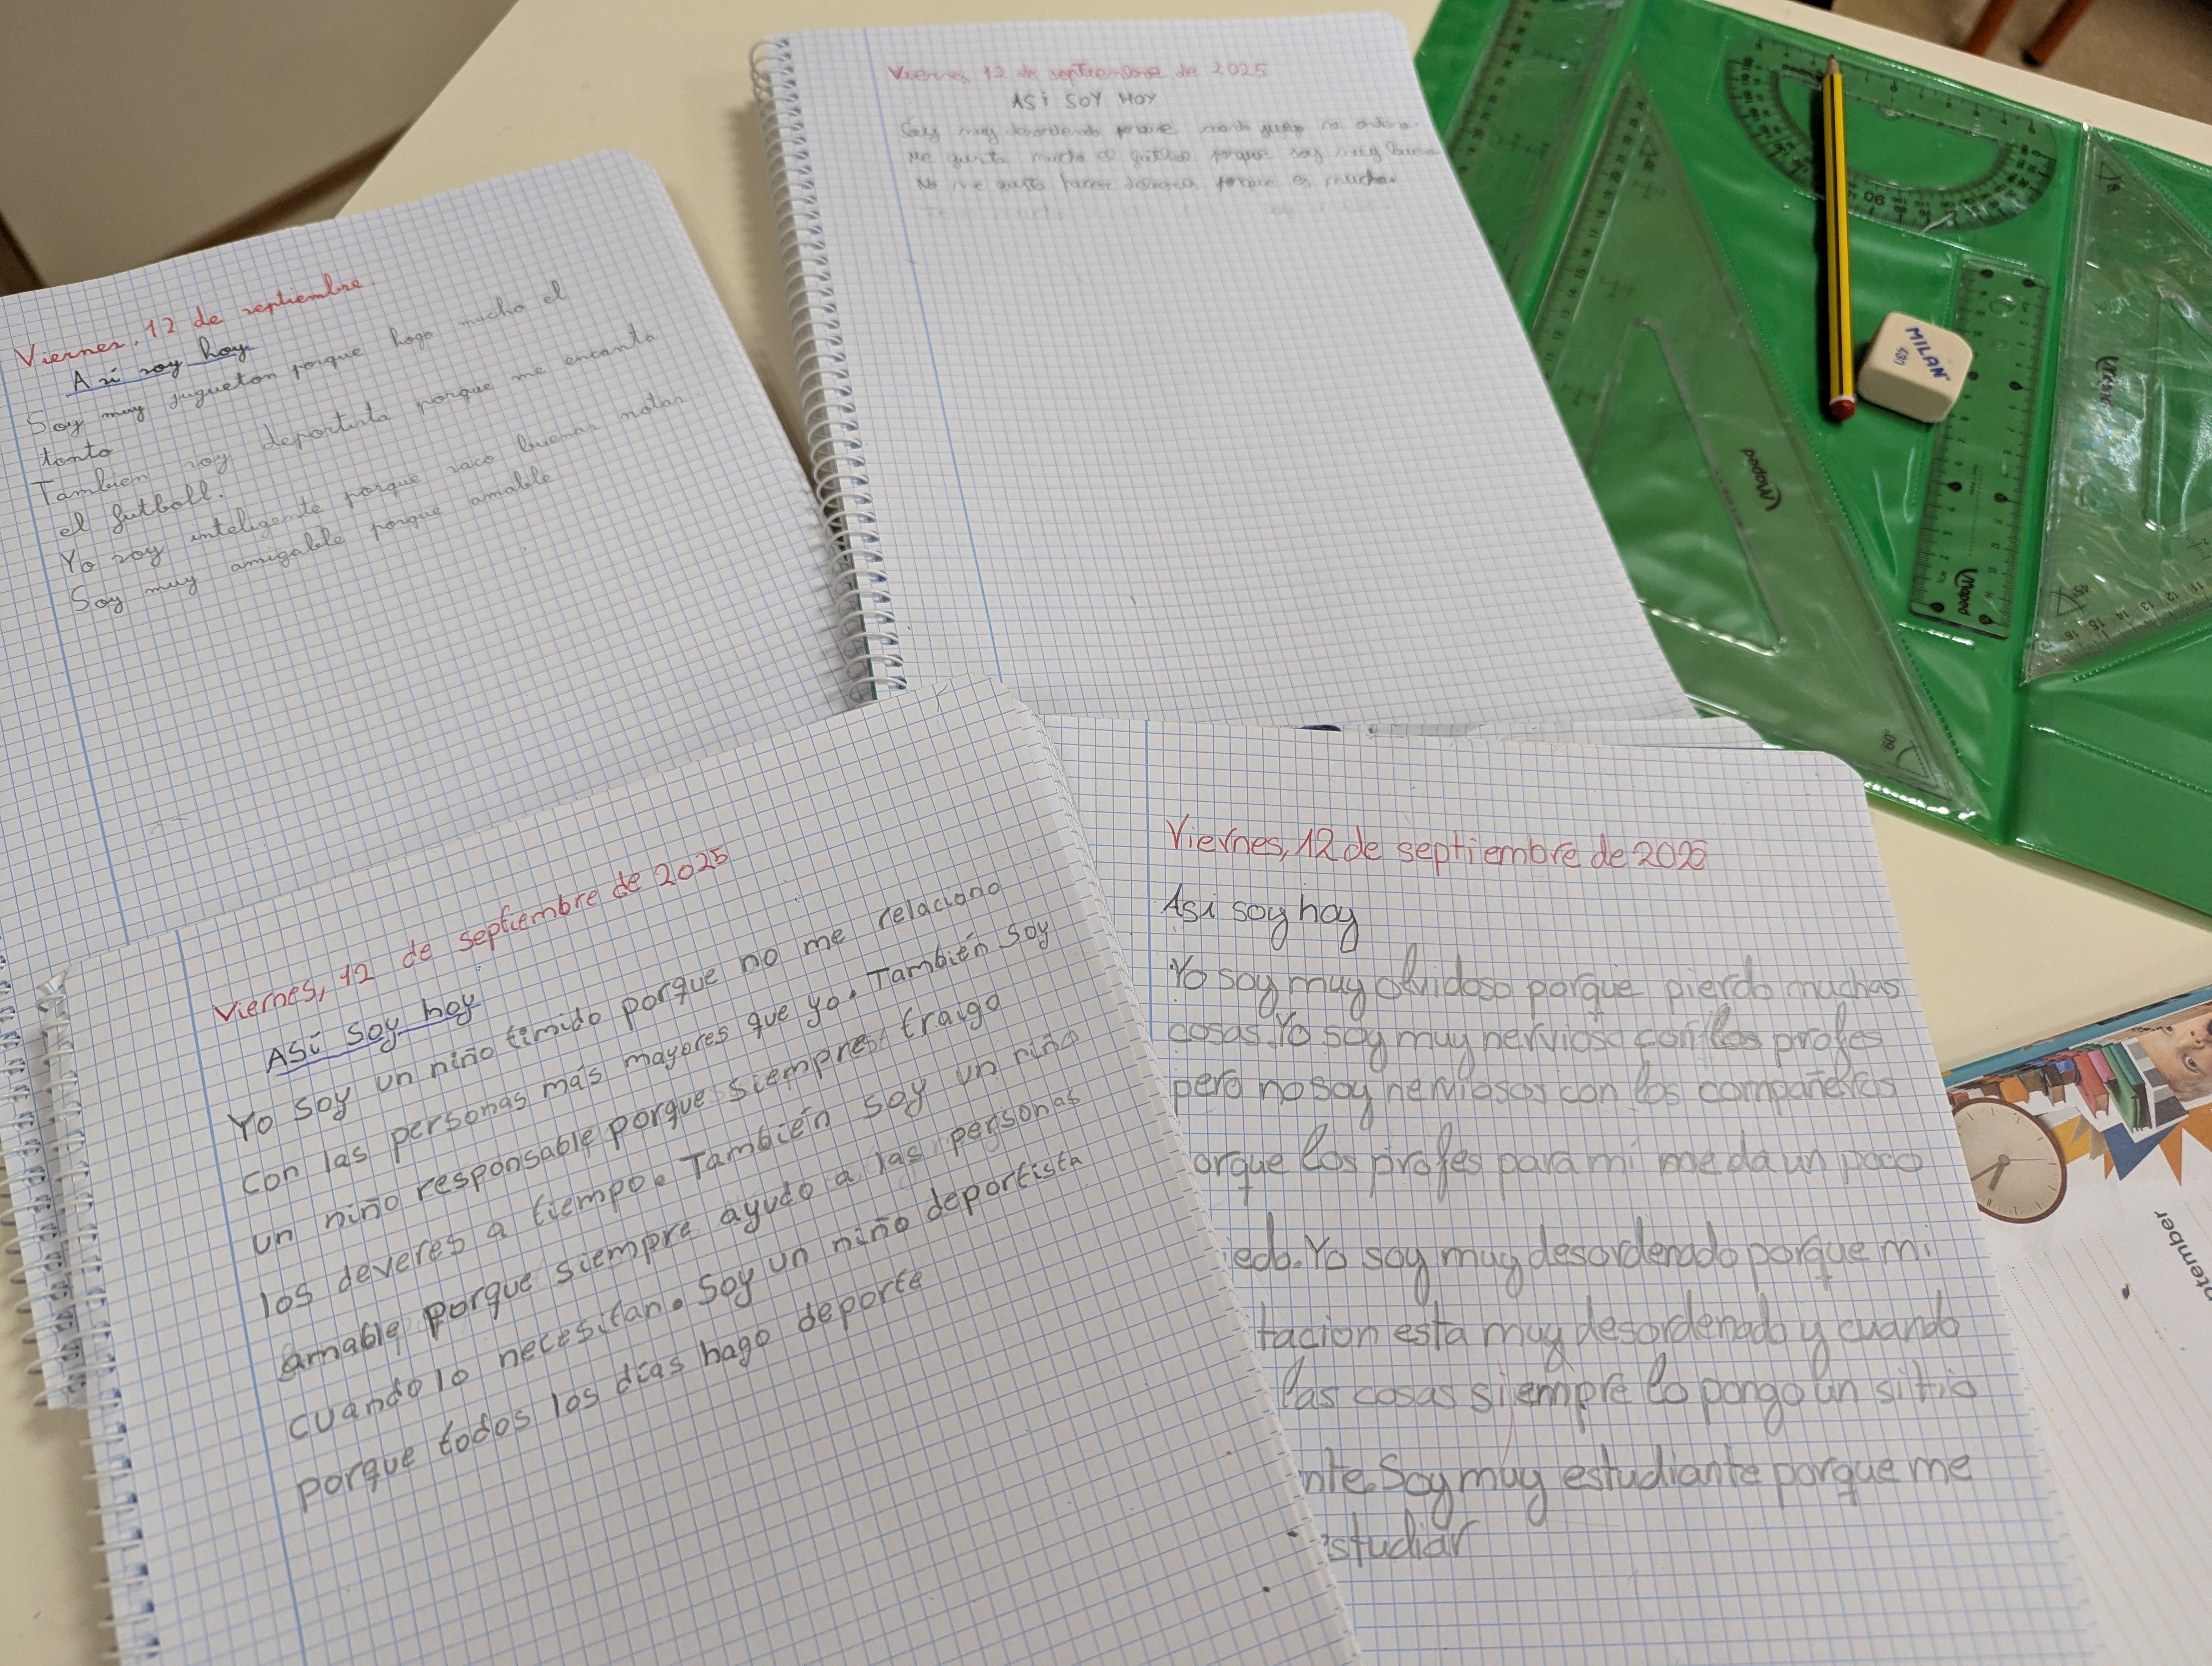 Viernes, 12 de septiembre.
Asi soy hoy
Soy muy jugueton porque hago mucho el
tonto
Tambien soy deportista porque me encanta
el futboll.
Yo soy inteligente porque saco buenas notas.
Soy muy amigable porque amable
Viernes 12 de septiembre de 2025
ASi SOY HOY
Soy muy desordenado porque cuando juego no ordeno.
Me gusta mucho el futbol porque soy muy bueno
No me gusta hacer deberes porque es mucho.
Viernes, 12 de septiembre de 2025
Así soy hoy
Yo soy un niño timido porque no me relaciono
con las personas más mayores que yo. También soy
un niño responsable porque siempre traigo
los deveres a tiempo. También soy un niño
amable porque siempre ayudo a las personas
cuando lo necesitan. Soy un niño deportista
porque todos los días hago deporte
Viernes, 12 de septiembre de 2025
Asi soy hoy
Yo soy muy olvidoso porque pierdo muchas
cosas. Yo soy muy nervioso con los profes
pero no soy nerviosos con los compañeros
orque los profes para mi me da un poco
iedo. Yo soy muy desordenado porque mi
tacion esta muy desordenado y cuando
las cosas siempre lo pongo un sitio
nte. Soy muy estudiante porque me
estudiar
MILAN
430
Maped
Maped
Maped
90
60°
45°
ptember